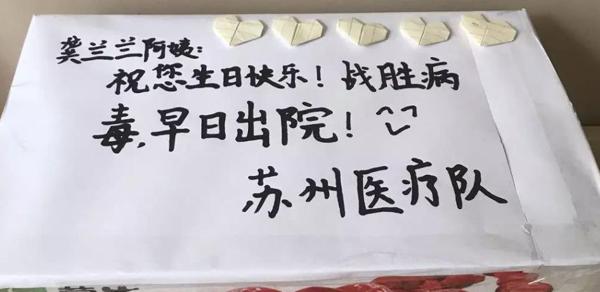 龚兰兰阿姨:
祝您生日快乐!战胜病
毒,早日出院!
苏州医疗队